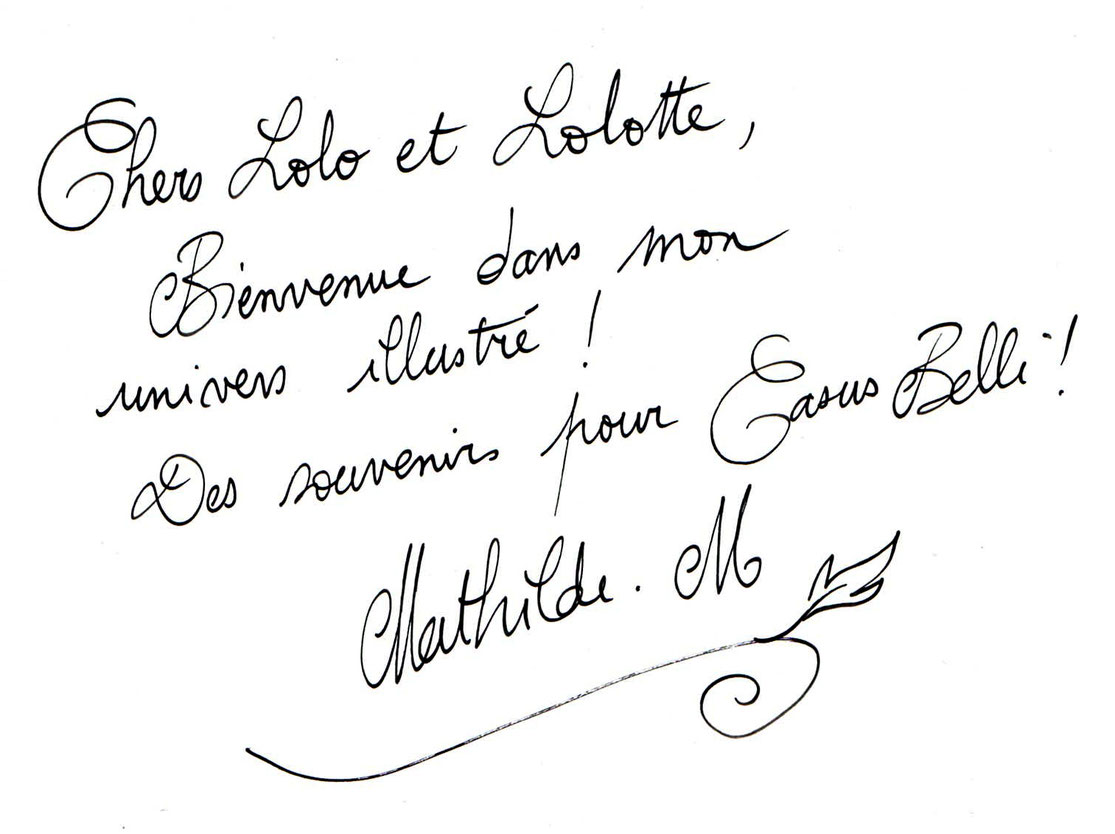 Chers Lolo et Lolotte,
Bienvenue dans mon
univers illustré !
Des souvenirs pour Casus Belli !
Mathilde. M